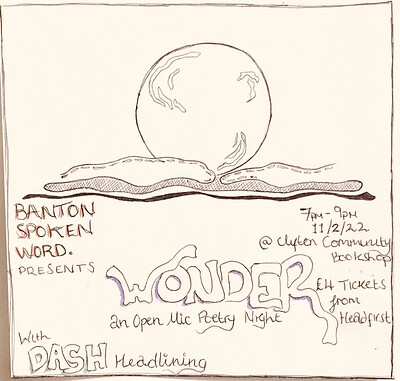 BANTON
SPOKEN
WORD.
PRESENTS
7pm - 9pm
11/2/22
@ Clifton Community
Bookshop
WONDER
an Open Mic Poetry Night
£4 Tickets
from
Headfirst
With
DASH Headlining